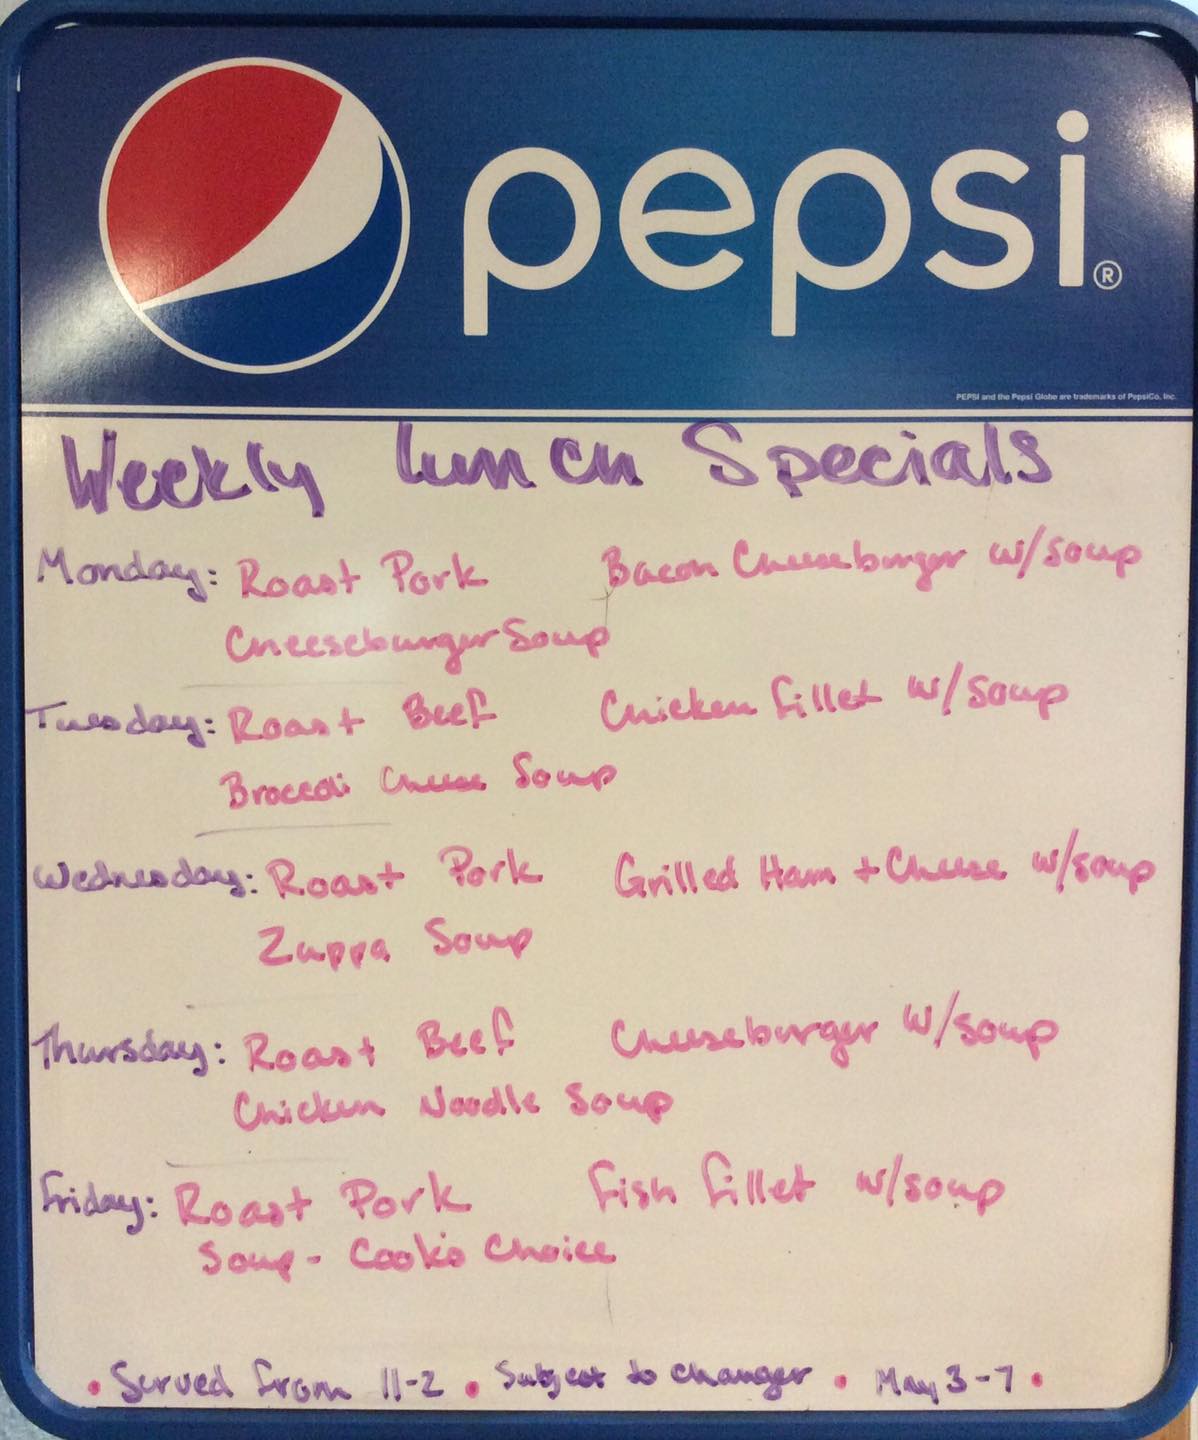 pepsi®
PEPSI and the Pepsi Globe are trademarks of PepsiCo, Inc.
Weekly lunch Specials
Monday: Roast Pork Bacon Cheeseburger w/soup
Cheeseburger Soup
Tuesday: Roast Beef Chicken fillet w/soup
Broccoli Cheese Soup
Wednesday: Roast Pork Grilled Ham + Cheese w/soup
Zuppa Soup
Thursday: Roast Beef Cheeseburger w/soup
Chicken Noodle Soup
Friday: Roast Pork Fish fillet w/soup
Soup - Cook's Choice
• Served from 11-2 • Subject to changer • May 3-7 •